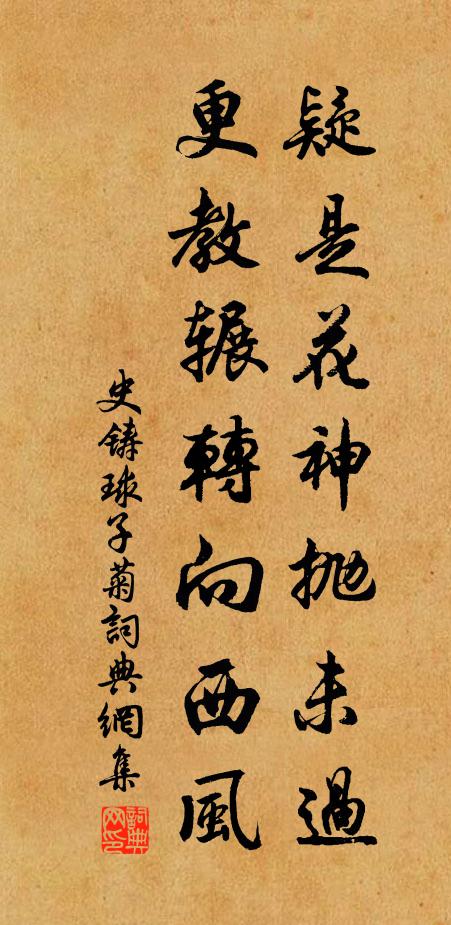 疑是花神抛未過
更教辗轉向西風
史鑄球子菊詞典網集
詞典網印